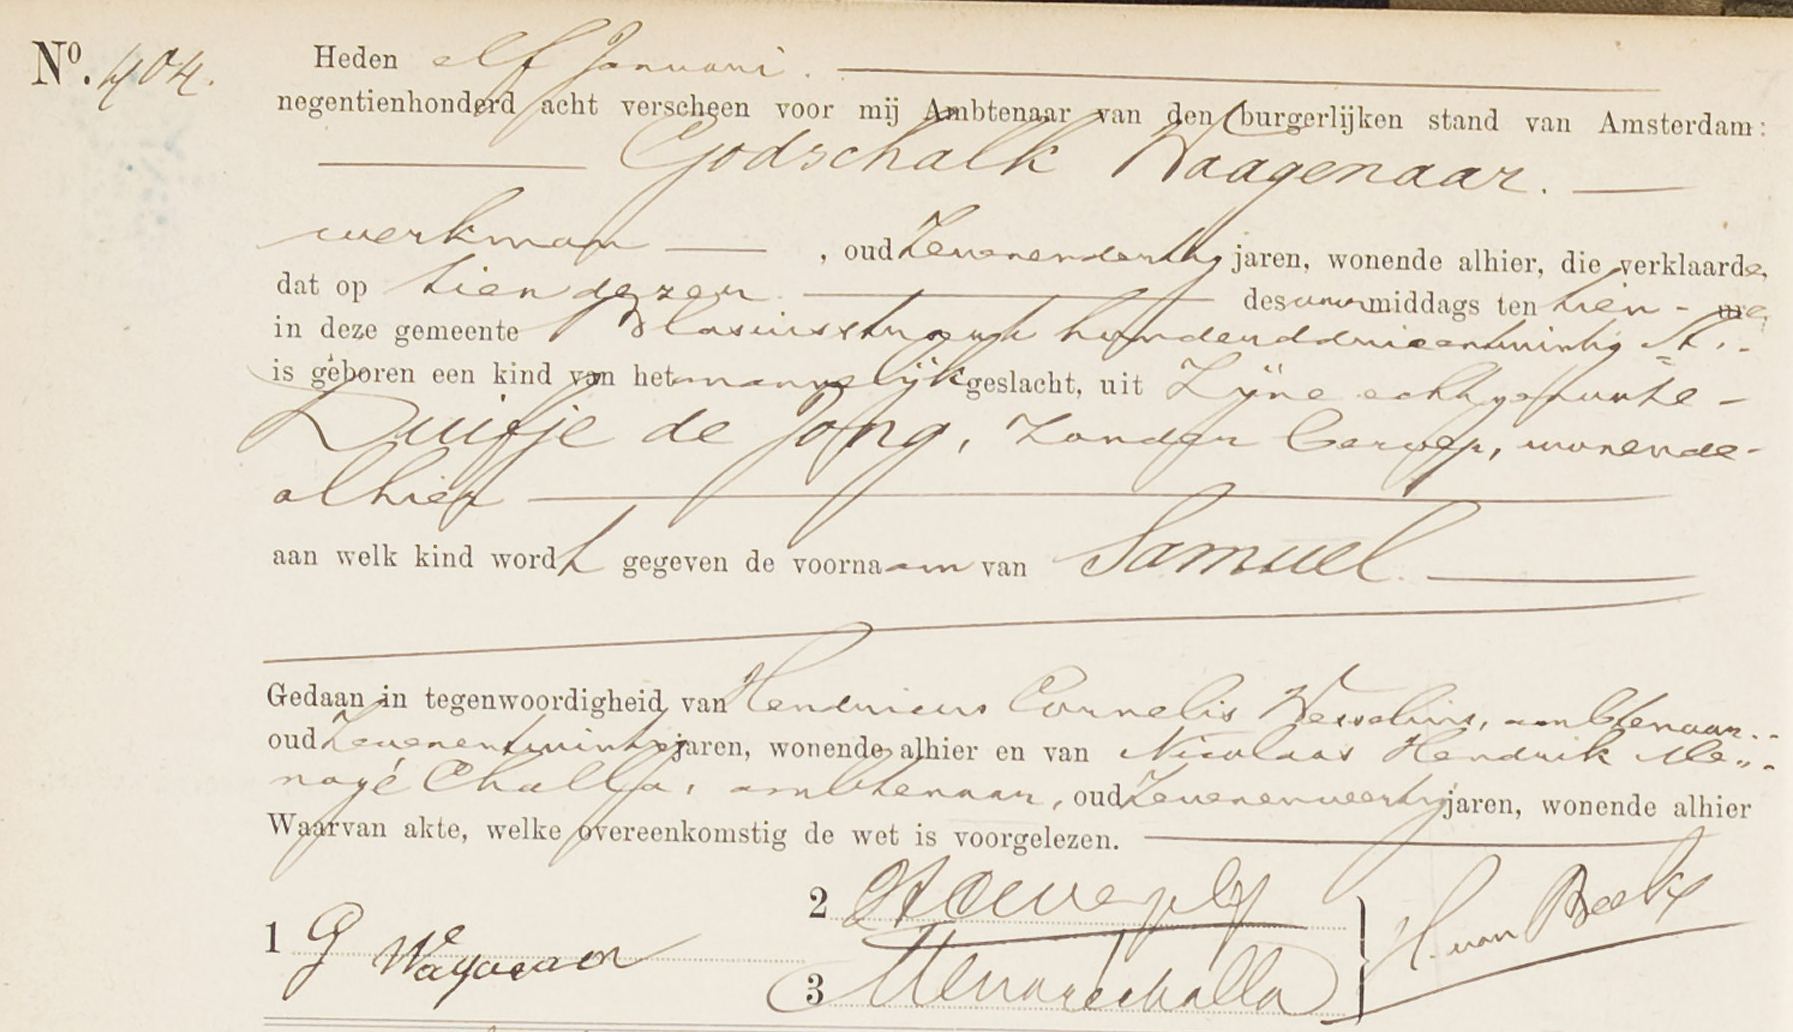 No. 404. Heden elf Januari.
negentienhonderd acht verscheen voor mij Ambtenaar van den burgerlijken stand van Amsterdam:
Godschalk Waagenaar.
werkman, oud Zevenendertig jaren, wonende alhier, die verklaarde,
dat op tien dezer des voormiddags ten tien ure
in deze gemeente Blasiusstraat honderddrieentwintig
is geboren een kind van het mannelijk geslacht, uit Zijne echtgenoote
Duifje de Jong, Zonder beroep, wonende
alhier
aan welk kind wordt gegeven de voornaam van Samuel.
Gedaan in tegenwoordigheid van Hendricus Cornelis Wesselius, ambtenaar
oud Zevenentwintig jaren, wonende alhier en van Nicolaas Hendrik Me
nagé Challa, ambtenaar, oud Zevenenveertig jaren, wonende alhier
Waarvan akte, welke overeenkomstig de wet is voorgelezen.
2
H. van Beek
1 G Wagenaar
3 Menagechalla